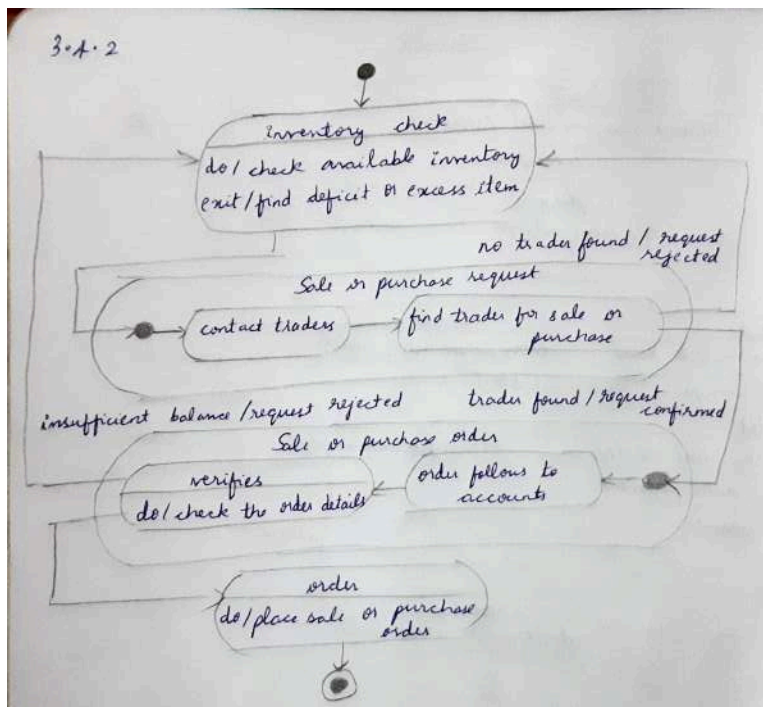 3.4.2
inventory check
do/ check available inventory
exit/find deficit or excess item
no trader found / request
rejected
Sale or purchase request
contact traders
find trader for sale or
purchase
insufficient balance/request rejected
trader found / request
confirmed
Sale or purchase order
verifies
do/check the order details
order follows to
accounts
order
do/place sale or purchase
order